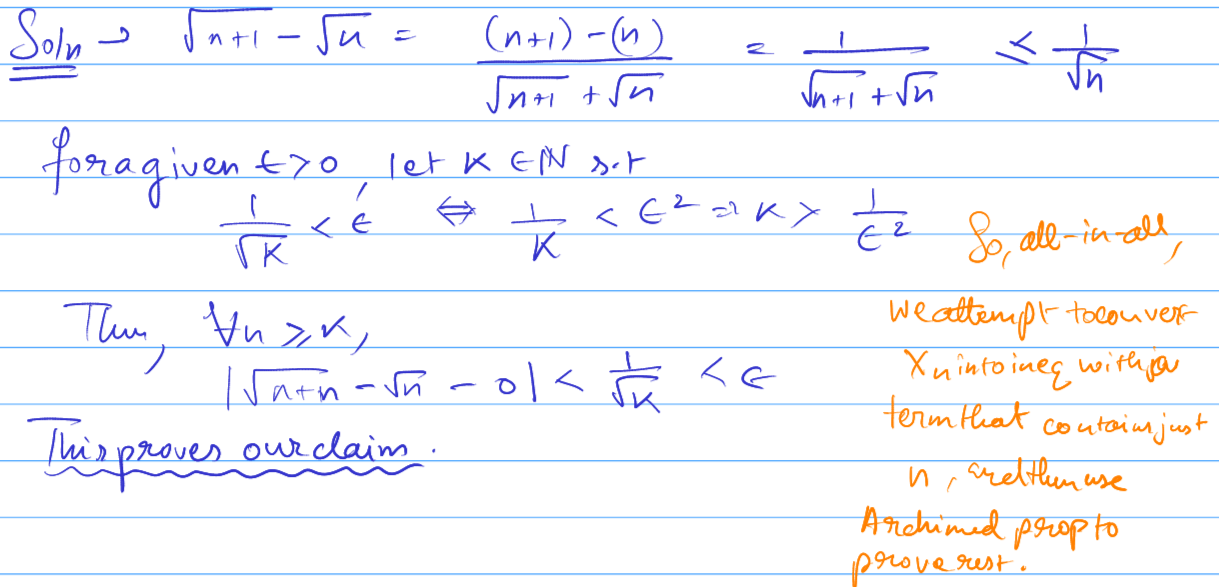 Soln → √n+1 - √n = (n+1) - (n) / √n+1 + √n = 1 / √n+1 + √n ≤ 1/√n
for a given ε>0, let K ∈ N s.t
1/√K < ε ⇔ 1/K < ε² => K > 1/ε²
Thus, ∀n ≥ K,
|√n+n - √n - 0| < 1/√K < ε
This proves our claim.
So, all-in-all,
We attempt to convert
Xn into ineq with a
term that contain just
n, and then use
Archimed prop to
prove rest.